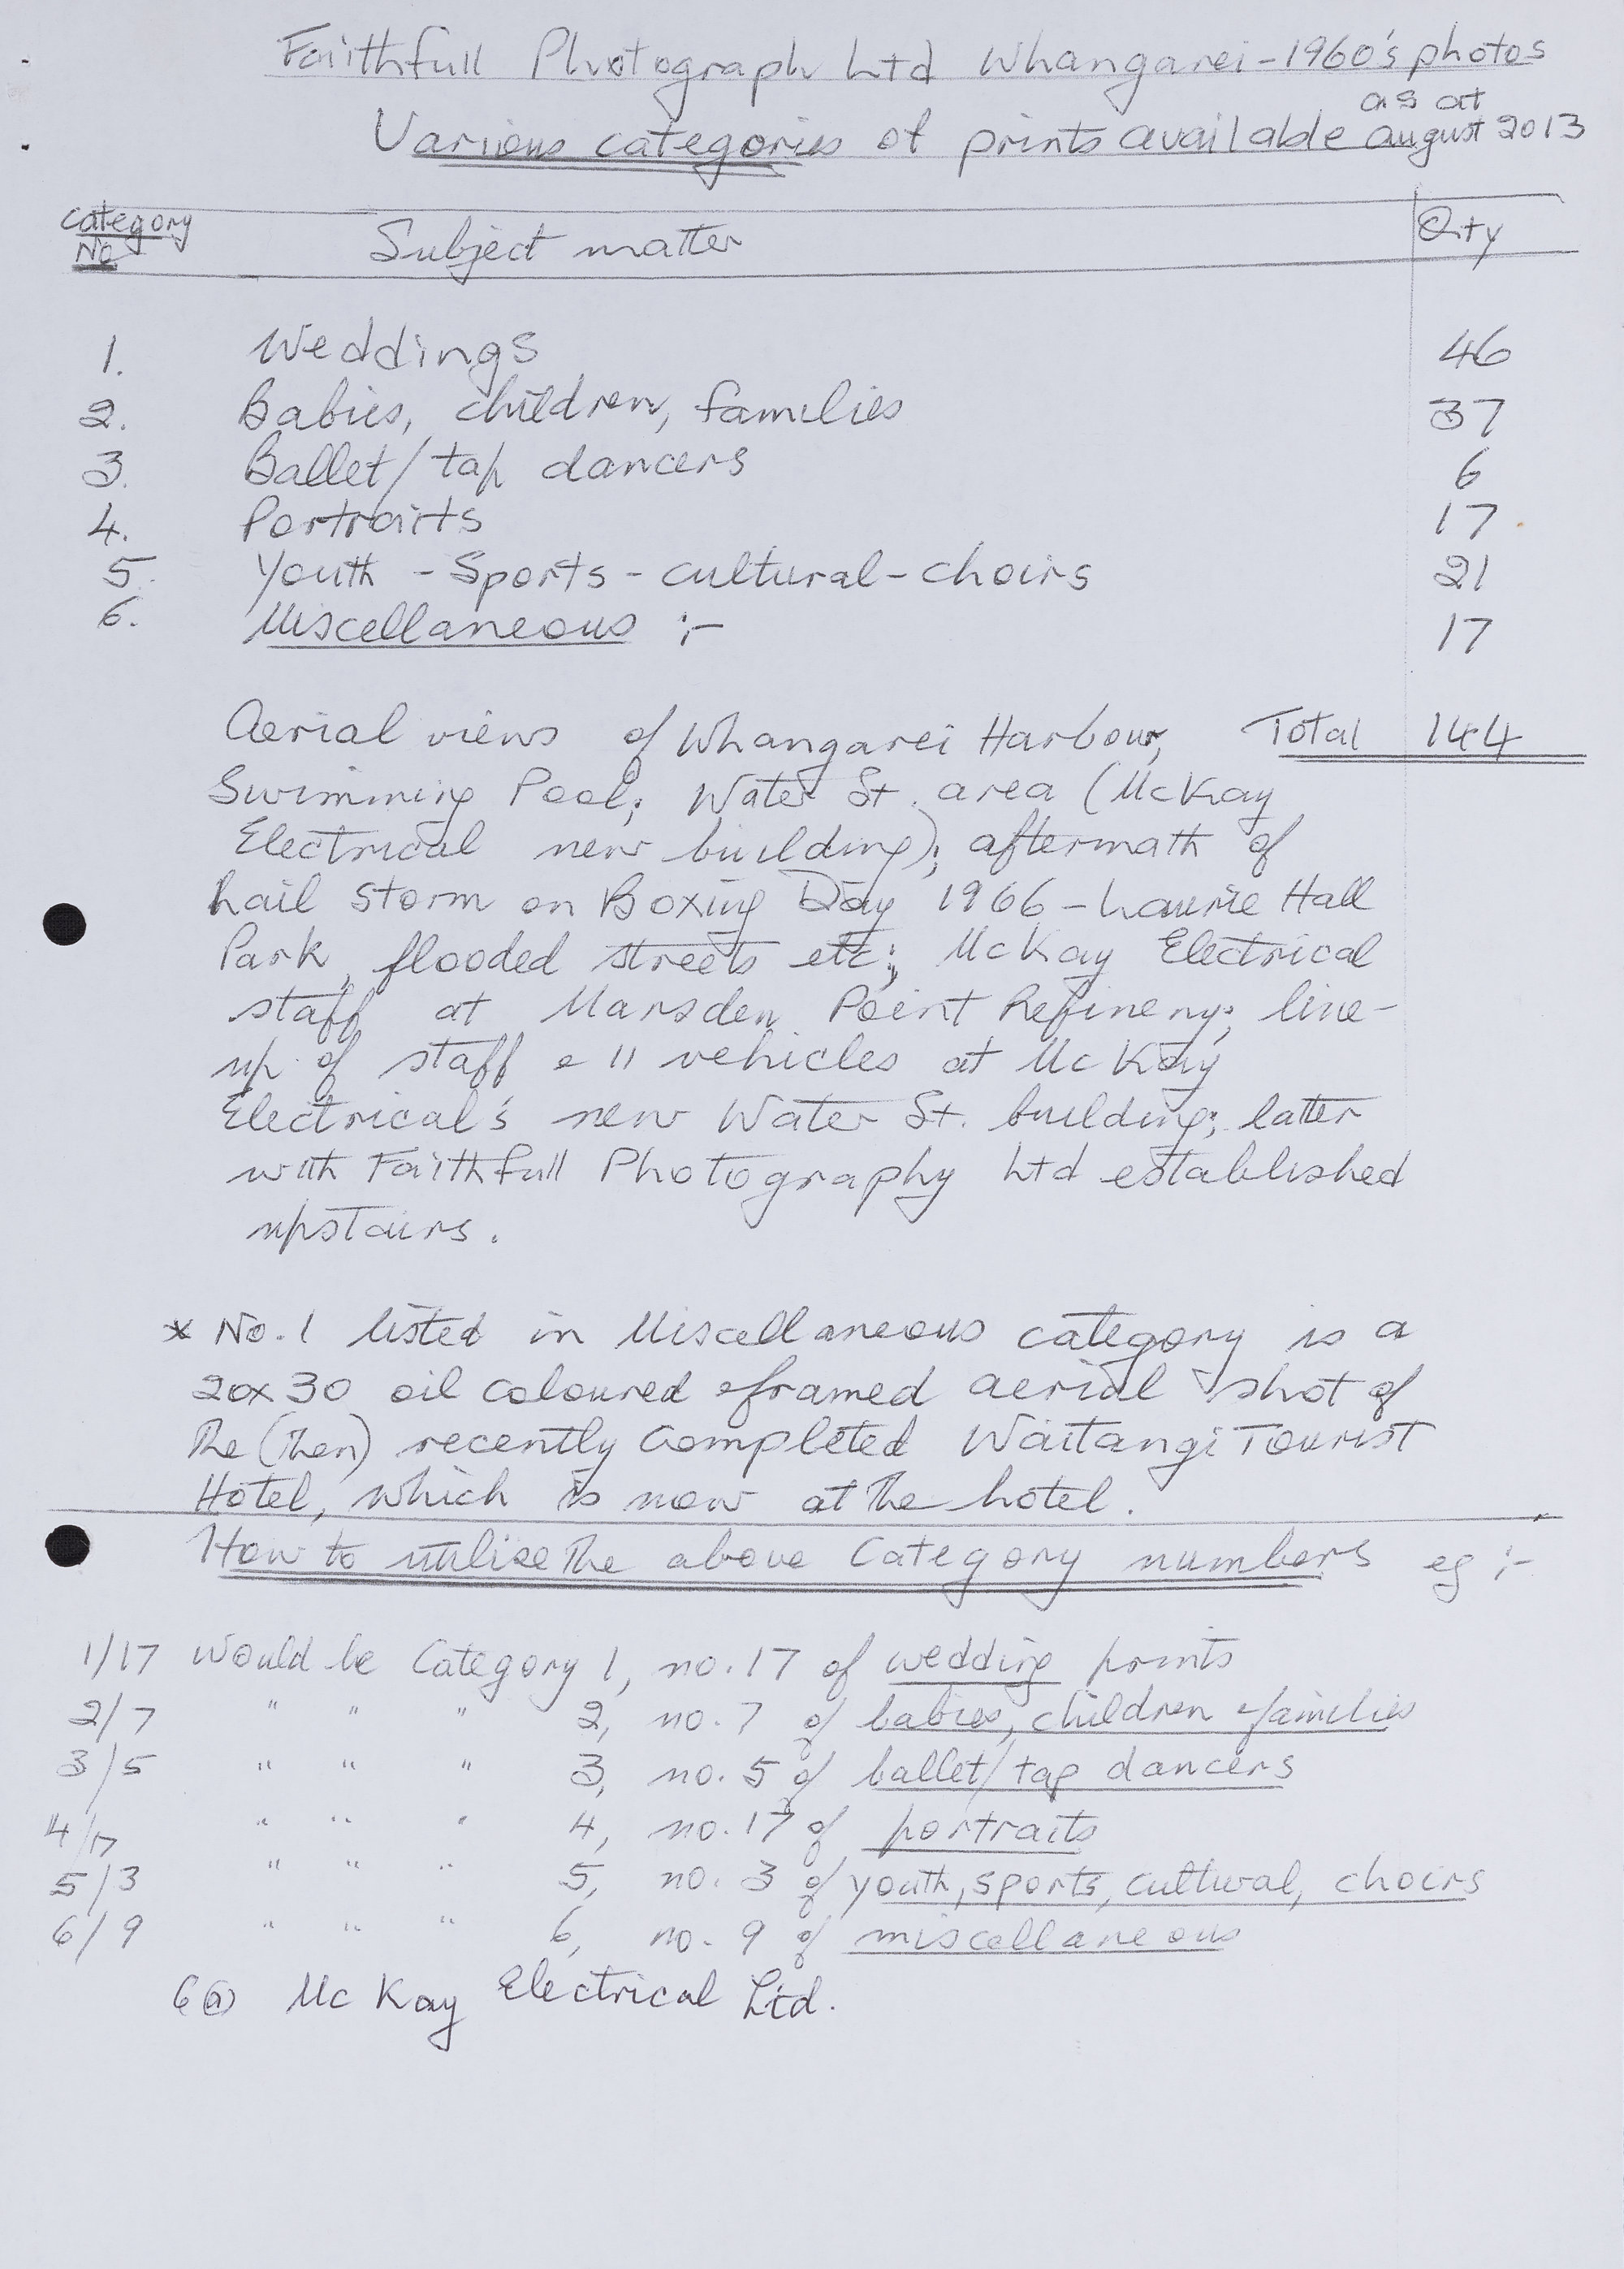 Faithfull Photograph Ltd Whangarei - 1960's photos
Various categories of prints available as at August 2013
Category No Subject matter Qity
1. Weddings 46
2. Babies, children, families 37
3. Ballet/tap dancers 6
4. Portraits 17
5. Youth - Sports - cultural - choirs 21
6. Miscellaneous :- 17
Aerial views of Whangarei Harbour, Total 144
Swimming Pool; Water St. area (McKay
Electrical new building); aftermath of
hail storm on Boxing Day 1966 - Laurie Hall
Park, flooded streets etc; McKay Electrical
staff at Marsden Point Refinery; line-
up of staff & 11 vehicles at McKay
Electrical's new Water St. building; latter
with Faithfull Photography Ltd established
upstairs.
* No. 1 listed in Miscellaneous category is a
20x30 oil coloured & framed aerial shot of
the (then) recently completed Waitangi Tourist
Hotel, which is now at the hotel.
How to utilise the above Category numbers eg :-
1/17 would be Category 1, no. 17 of wedding prints
2/7 " " " 2, no. 7 of babies, children & families
3/5 " " " 3, no. 5 of ballet/tap dancers
4/17 " " " 4, no. 17 of portraits
5/3 " " " 5, no. 3 of youth, sports, cultural, choirs
6/9 " " " 6, no. 9 of miscellaneous
6(a) McKay Electrical Ltd.